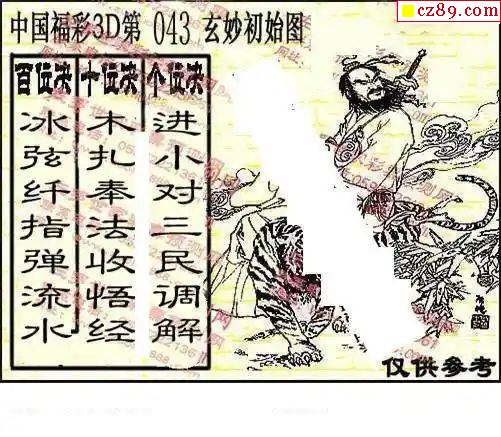 cz89.com
中国福彩3D第 043 玄妙初始图
百位决 十位决 个位决
冰弦纤指弹流水
木扎奉法收悟经
进小对三民调解
仅供参考